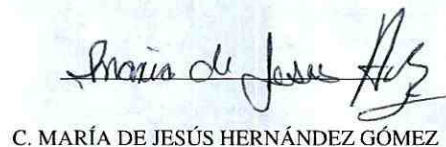 Maria de Jesus
C. MARÍA DE JESÚS HERNÁNDEZ GÓMEZ